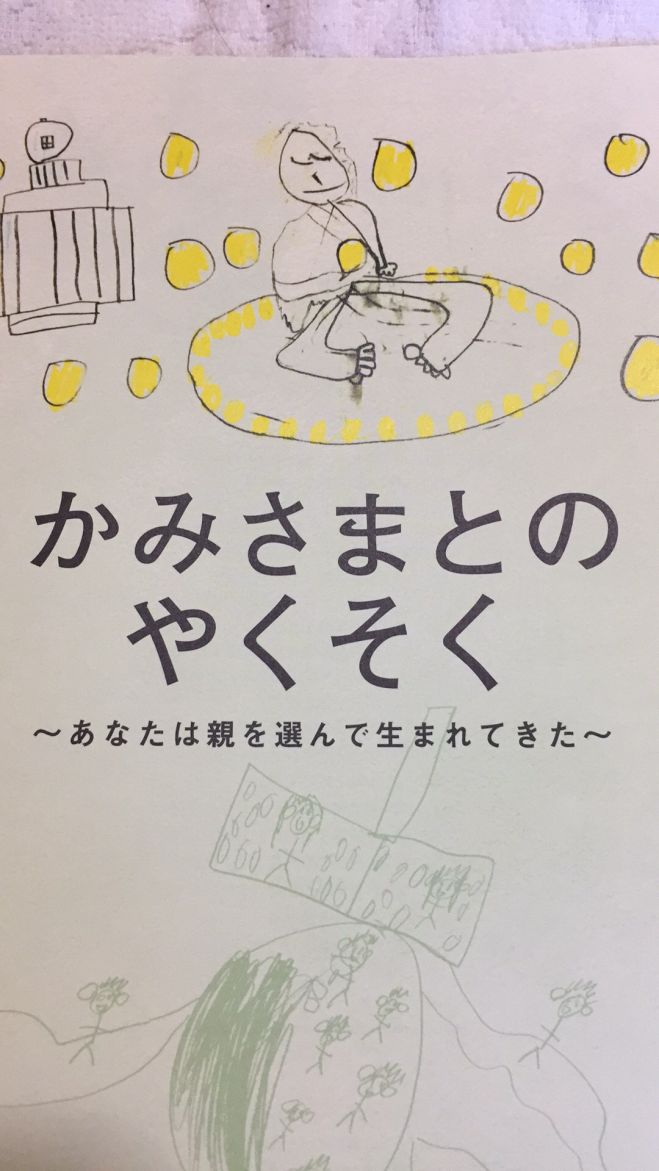 かみさまとの
やくそく
～あなたは親を選んで生まれてきた～